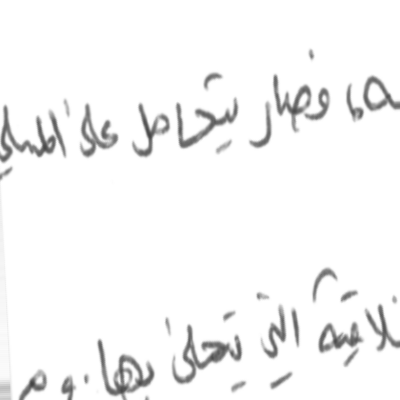 ه، فصار يتحامل على المسلم
لاقية التي يتحلى بها. و م